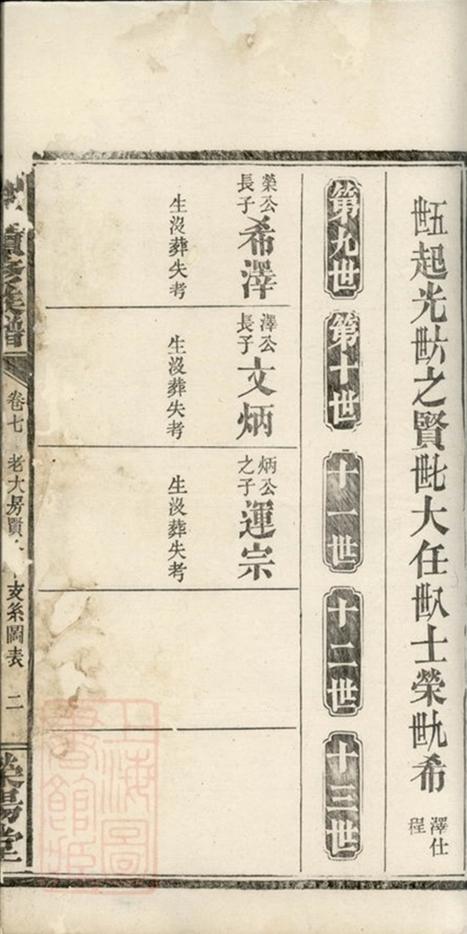 五世起光六世之賢七世大任八世士榮九世希
澤仕
程
第九世
第十世
十一世
十二世
十三世
榮公
長子
希澤
生沒葬失考
澤公
長子
文炳
生沒葬失考
炳公
之子
運宗
生沒葬失考
續修族譜
卷七
老大房賢
支系圖表
二